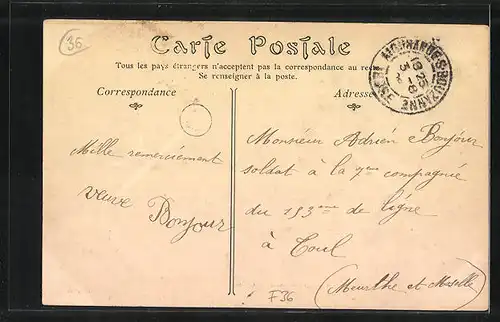 36
Carte Postale
Tous les pays étrangers n'acceptent pas la correspondance au rec
Se renseigner à la poste.
Correspondance
Adresse
Mille remerciement
veuve Bonjour
Monsieur Adrien Bonjour
soldat à la 7eme compagnie
du 153eme de ligne
à Toul
(Meurthe et Moselle)
F36